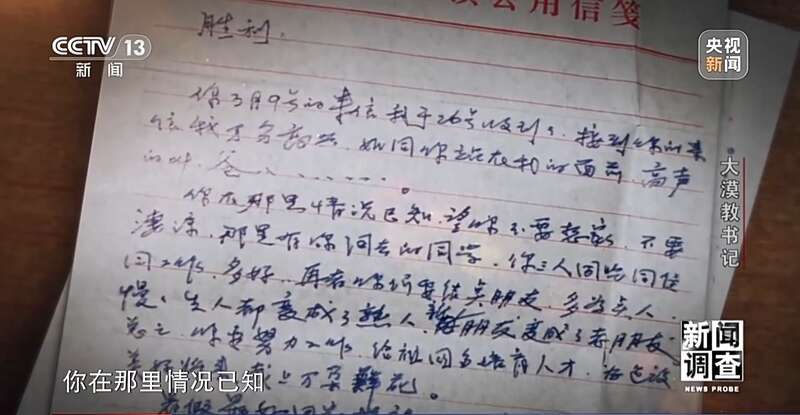 CCTV 13
新闻
公用信笺
央视
新闻
胜利.
你3月9号的来信我于26号收到了.接到你的来
信我万分高兴.如同你站在我的面前.高声
的叫.爸、、、、、、。
你在那里情况已知.望你不要想家.不要
凄凉.那里有你同去的同学.你三人同吃同住
同工作.多好.再者你们要结点朋友.多为点人.
慢、生人都变成了熟人.新朋友变成了老朋友.
总之.你要努力工作.给祖国多培育人才.为边设
大漠教书记
你在那里情况已知
新闻
调查
NEWS PROBE